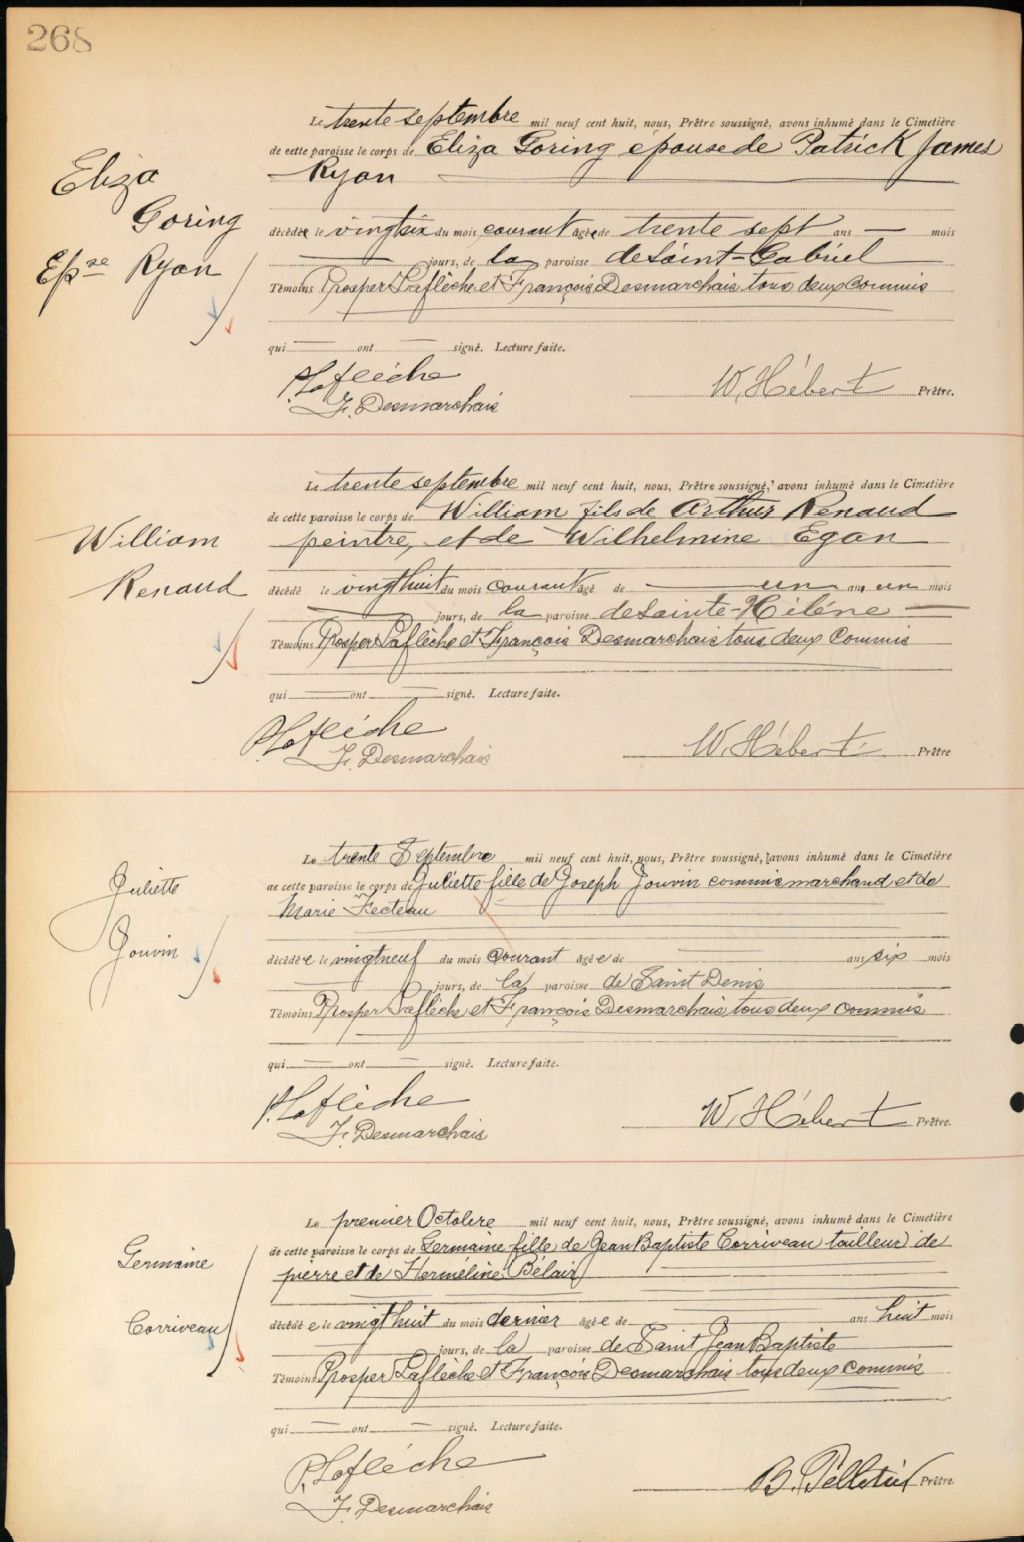 268
Le trente septembre mil neuf cent huit, nous, Prêtre soussigné, avons inhumé dans le Cimetière
de cette paroisse le corps de Eliza Goring épouse de Patrick James
Ryan
Eliza
Goring
Epse Ryan
décédée le vingtsix du mois courant âgée de trente sept ans — mois
— jours, de la paroisse de Saint-Gabriel
Témoins Prosper Laflèche et François Desmarchais tous deux commis
qui — ont — signé. Lecture faite.
P. Laflèche
F. Desmarchais
W. Hébert Prêtre.
Le trente septembre mil neuf cent huit, nous, Prêtre soussigné, avons inhumé dans le Cimetière
de cette paroisse le corps de William fils de Arthur Renaud
peintre, et de Wilhelmine Egan
William
Renaud
décédé le vingthuit du mois courant âgé de — un an, un mois
— jours, de la paroisse de Sainte-Hélène —
Témoins Prosper Laflèche et François Desmarchais tous deux commis
qui — ont — signé. Lecture faite.
P. Laflèche
F. Desmarchais
W. Hébert Prêtre
Le trente Septembre mil neuf cent huit, nous, Prêtre soussigné, avons inhumé dans le Cimetière
de cette paroisse le corps de Juliette fille de Joseph Jouvin commis marchand et de
Marie Fecteau
Juliette
Jouvin
décédée le vingtneuf du mois courant âgée de — ans six mois
— jours, de la paroisse de Saint Denis
Témoins Prosper Laflèche et François Desmarchais tous deux commis
qui — ont — signé. Lecture faite.
P. Laflèche
F. Desmarchais
W. Hébert Prêtre.
Le premier Octobre mil neuf cent huit, nous, Prêtre soussigné, avons inhumé dans le Cimetière
de cette paroisse le corps de Germaine fille de Jean Baptiste Corriveau tailleur de
pierre et de Herméline Bélair
Germaine
Corriveau
décédée le vingt huit du mois dernier âgée de — ans huit mois
— jours, de la paroisse de Saint Jean Baptiste
Témoins Prosper Laflèche et François Desmarchais tous deux commis
qui — ont — signé. Lecture faite.
P. Laflèche
F. Desmarchais
B. Pelletier Prêtre